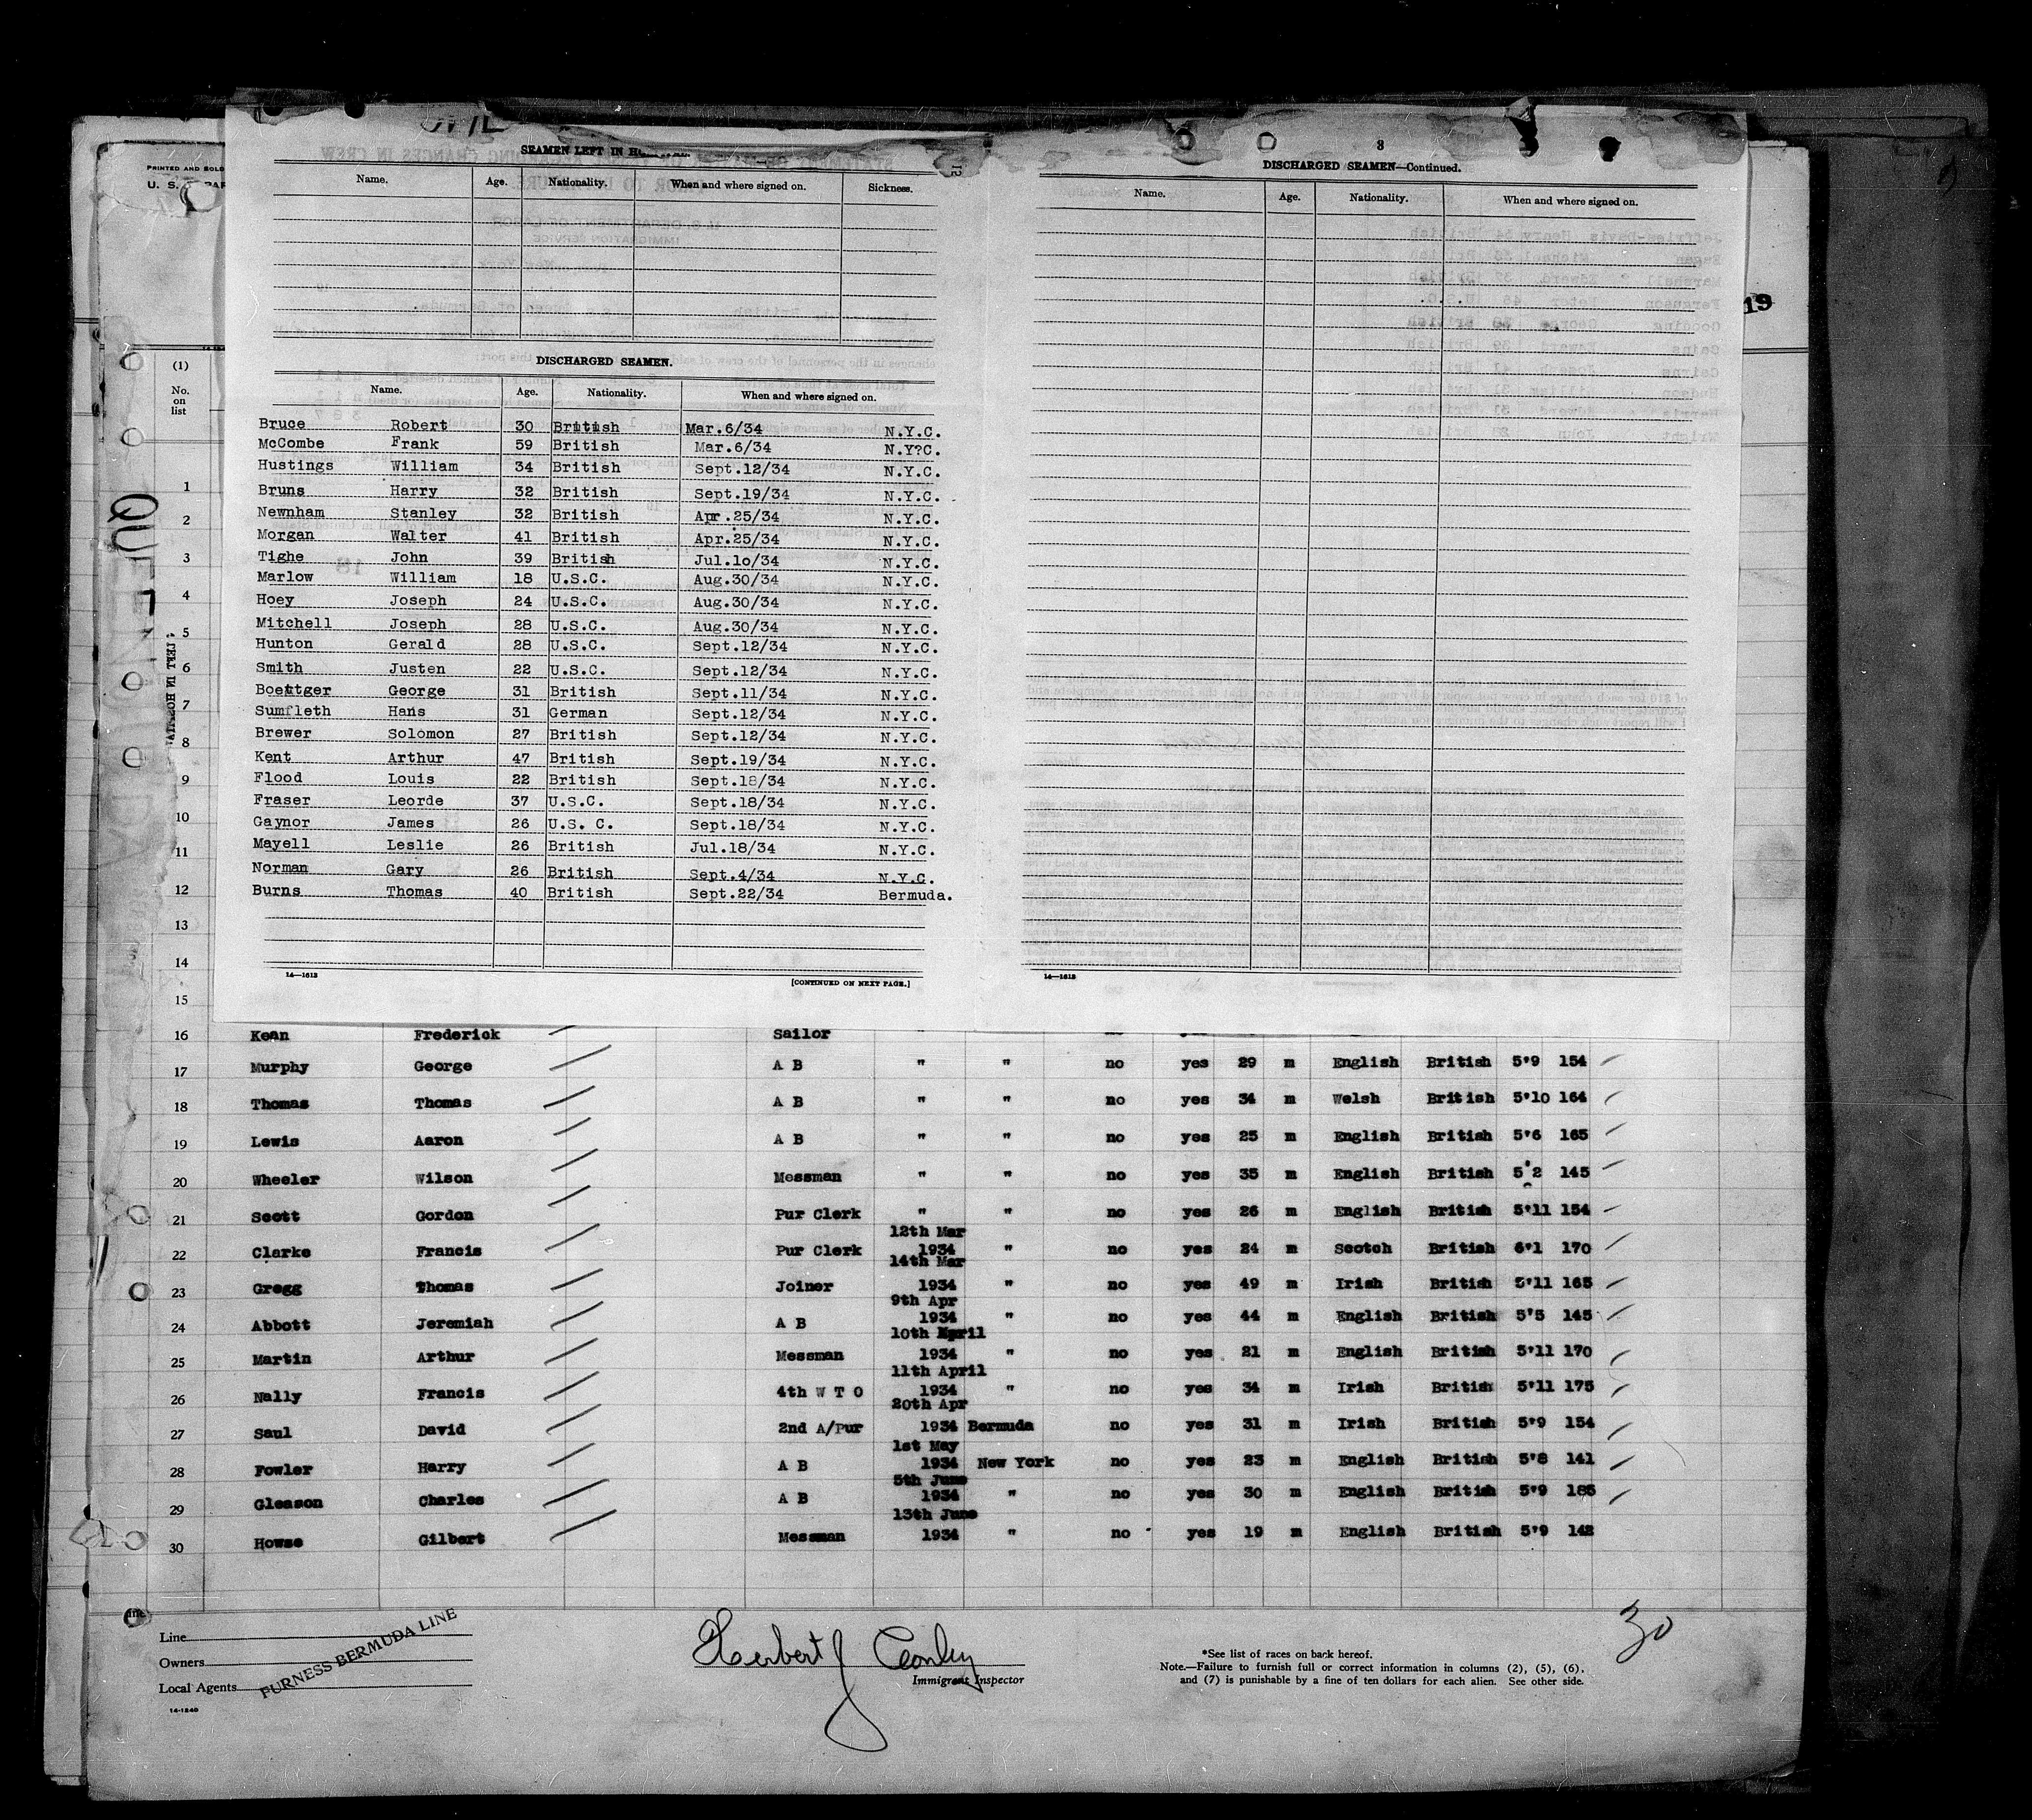 PRINTED AND SOLD
U. S.
SEAMEN LEFT IN
Name. Age. Nationality. When and where signed on. Sickness.
DISCHARGED SEAMEN.
Name. Age. Nationality. When and where signed on.
Bruce Robert 30 British Mar.6/34 N.Y.C.
McCombe Frank 59 British Mar.6/34 N.Y?C.
Hustings William 34 British Sept.12/34 N.Y.C.
Bruns Harry 32 British Sept.19/34 N.Y.C.
Newnham Stanley 32 British Apr.25/34 N.Y.C.
Morgan Walter 41 British Apr.25/34 N.Y.C.
Tighe John 39 British Jul.1o/34 N.Y.C.
Marlow William 18 U.S.C. Aug.30/34 N.Y.C.
Hoey Joseph 24 U.S.C. Aug.30/34 N.Y.C.
Mitchell Joseph 28 U.S.C. Aug.30/34 N.Y.C.
Hunton Gerald 28 U.S.C. Sept.12/34 N.Y.C.
Smith Justen 22 U.S.C. Sept.12/34 N.Y.C.
Boettger George 31 British Sept.11/34 N.Y.C.
Sumfleth Hans 31 German Sept.12/34 N.Y.C.
Brewer Solomon 27 British Sept.12/34 N.Y.C.
Kent Arthur 47 British Sept.19/34 N.Y.C.
Flood Louis 22 British Sept.18/34 N.Y.C.
Fraser Leorde 37 U.S.C. Sept.18/34 N.Y.C.
Gaynor James 26 U.S. C. Sept.18/34 N.Y.C.
Mayell Leslie 26 British Jul.18/34 N.Y.C.
Norman Gary 26 British Sept.4/34 N.Y.C.
Burns Thomas 40 British Sept.22/34 Bermuda.
14—1613
[CONTINUED ON NEXT PAGE.]
3
DISCHARGED SEAMEN—Continued.
Name. Age. Nationality. When and where signed on.
14—1613
19
(1)
No.
on
list
QUEEN
1
2
3
4
5
6
7
8
9
10
11
12
13
14
15
16 Kean Frederick Sailor "
17 Murphy George A B " " no yes 29 m English British 5'9 154
18 Thomas Thomas A B " " no yes 34 m Welsh British 5'10 164
19 Lewis Aaron A B " " no yes 25 m English British 5'6 165
20 Wheeler Wilson Messman " " no yes 35 m English British 5'2 145
21 Scott Gordon Pur Clerk " " no yes 26 m English British 5'11 154
12th Mar
22 Clarke Francis Pur Clerk 1934 " no yes 24 m Scotch British 6'1 170
14th Mar
23 Gregg Thomas Joiner 1934 " no yes 49 m Irish British 5'11 165
9th Apr
24 Abbott Jeremiah A B 1934 " no yes 44 m English British 5'5 145
10th April
25 Martin Arthur Messman 1934 " no yes 21 m English British 5'11 170
11th April
26 Nally Francis 4th W T O 1934 " no yes 34 m Irish British 5'11 175
20th Apr
27 Saul David 2nd A/Pur 1934 Bermuda no yes 31 m Irish British 5'9 154
1st May
28 Fowler Harry A B 1934 New York no yes 23 m English British 5'8 141
5th June
29 Gleason Charles A B 1934 " no yes 30 m English British 5'9 185
13th June
30 Howse Gilbert Messman 1934 " no yes 19 m English British 5'9 142
30
Line
Owners
Local Agents
FURNESS BERMUDA LINE
14-1240
Herbert J Conley
Immigrant Inspector
*See list of races on back hereof.
Note.—Failure to furnish full or correct information in columns (2), (5), (6),
and (7) is punishable by a fine of ten dollars for each alien. See other side.